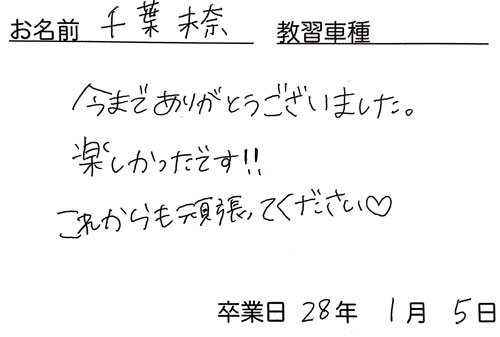 お名前 千葉 未奈 教習車種
今までありがとうございました。
楽しかったです!!
これからも頑張ってください♡
卒業日 28年 1月 5日